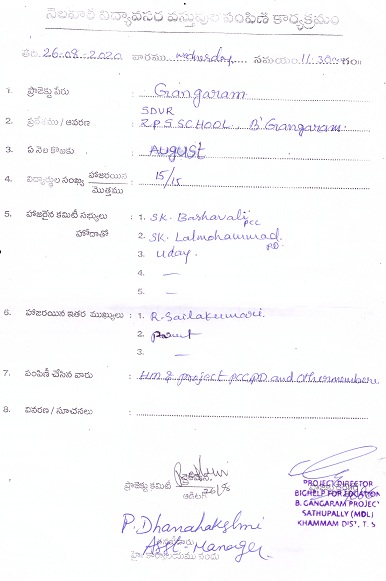 నెలవారి విద్యావసర వస్తువుల పంపిణి కార్యక్రమం
తేది. 26-08-2020 వారము Wednesday సమయం. 11.30 గం॥
1. ప్రాజెక్టు పేరు : Gangaram
SDVR
2. ప్రదేశము / ఆవరణ : Z.P.S. SCHOOL. B' Gangaram.
3. ఏ నెల కొరకు : AUGUST
4. విద్యార్థుల సంఖ్య హాజరయిన / మొత్తము : 15/15
5. హాజరైన కమిటీ సభ్యులు : 1. SK. Bashavali PCC
హోదాతో 2. SK. Lalmohammad. P.D.
3. Uday.
4. —
5. —
6. హాజరయిన ఇతర ముఖ్యులు : 1. R. Sailakumari.
2.
3. —
7. పంపిణీ చేసిన వారు : HM & project PCC, PD and Othermembers
8. వివరణ / సూచనలు :
ప్రాజెక్టు కమిటీ
ఆడిటర్
PROJECT DIRECTOR
BIGHELP FOR EDUCATION
B. GANGARAM PROJECT
SATHUPALLY (MDL)
KHAMMAM DIST, T. S
P. Dhanalakshmi
Asst. Manager